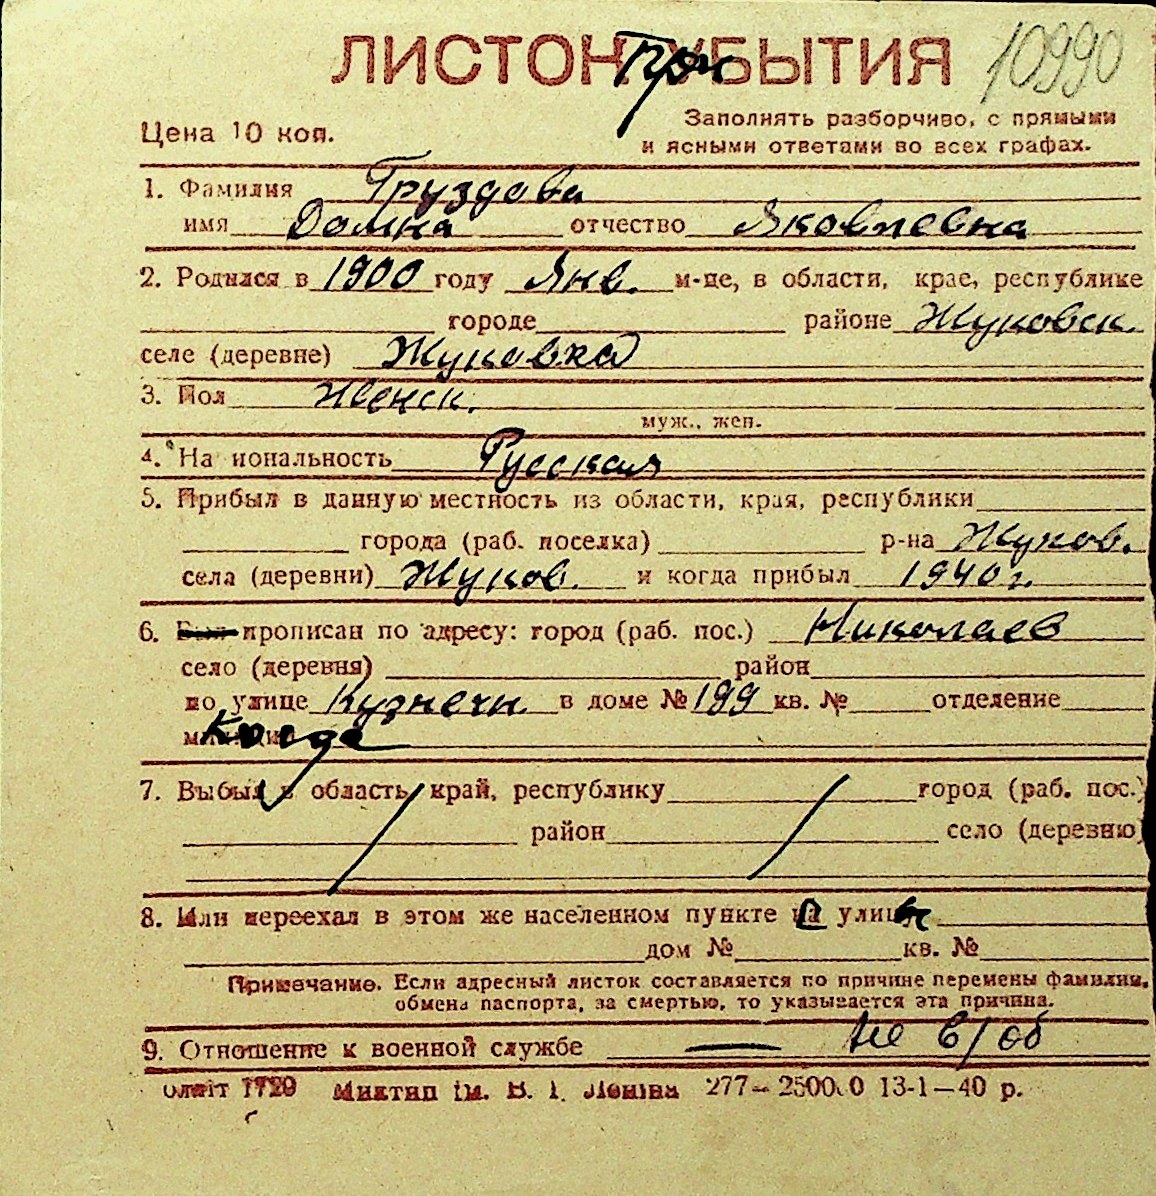 ЛИСТОК ПриБЫТИЯ 10990
Цена 10 коп.
Заполнять разборчиво, с прямыми
и ясными ответами во всех графах.
1. Фамилия Груздова
имя Домна отчество Яковлевна
2. Родился в 1900 году Янв. м-це, в области, крае, республике
городе районе Жуковск.
селе (деревне) Жуковка
3. Пол Женск.
муж., жен.
4. На иональность Русская
5. Прибыл в данную местность из области, края, республики
города (раб. поселка) р-на Жуков.
села (деревни) Жуков. и когда прибыл 1940 г.
6. прописан по адресу: город (раб. пос.) Николаев
село (деревня) район
по улице Кузнечн. в доме № 199 кв. № отделение
Когда
7. Выбыл в область, край, республику город (раб. пос.)
район село (деревню)
8. Или переехал в этом же населенном пункте улицы
дом № кв. №
Примечание. Если адресный листок составляется по причине перемены фамилии,
обмена паспорта, за смертью, то указывается эта причина.
9. Отношение к военной службе — не в/об
277— 13-1—40 р.